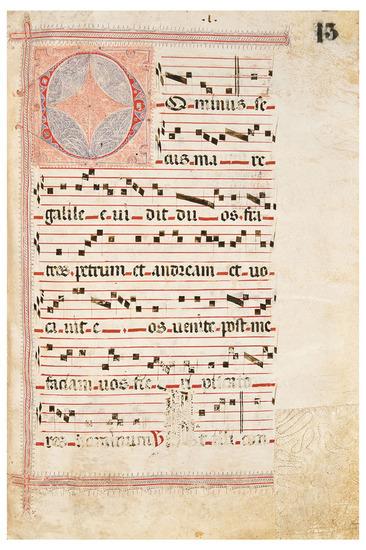 13
Ominus se
cus ma re
galile e ui dit du os fra
tres petrum et andream et uo
ca uit e os uenite post me
faciam uos fie ri piscato
res hominum illi con